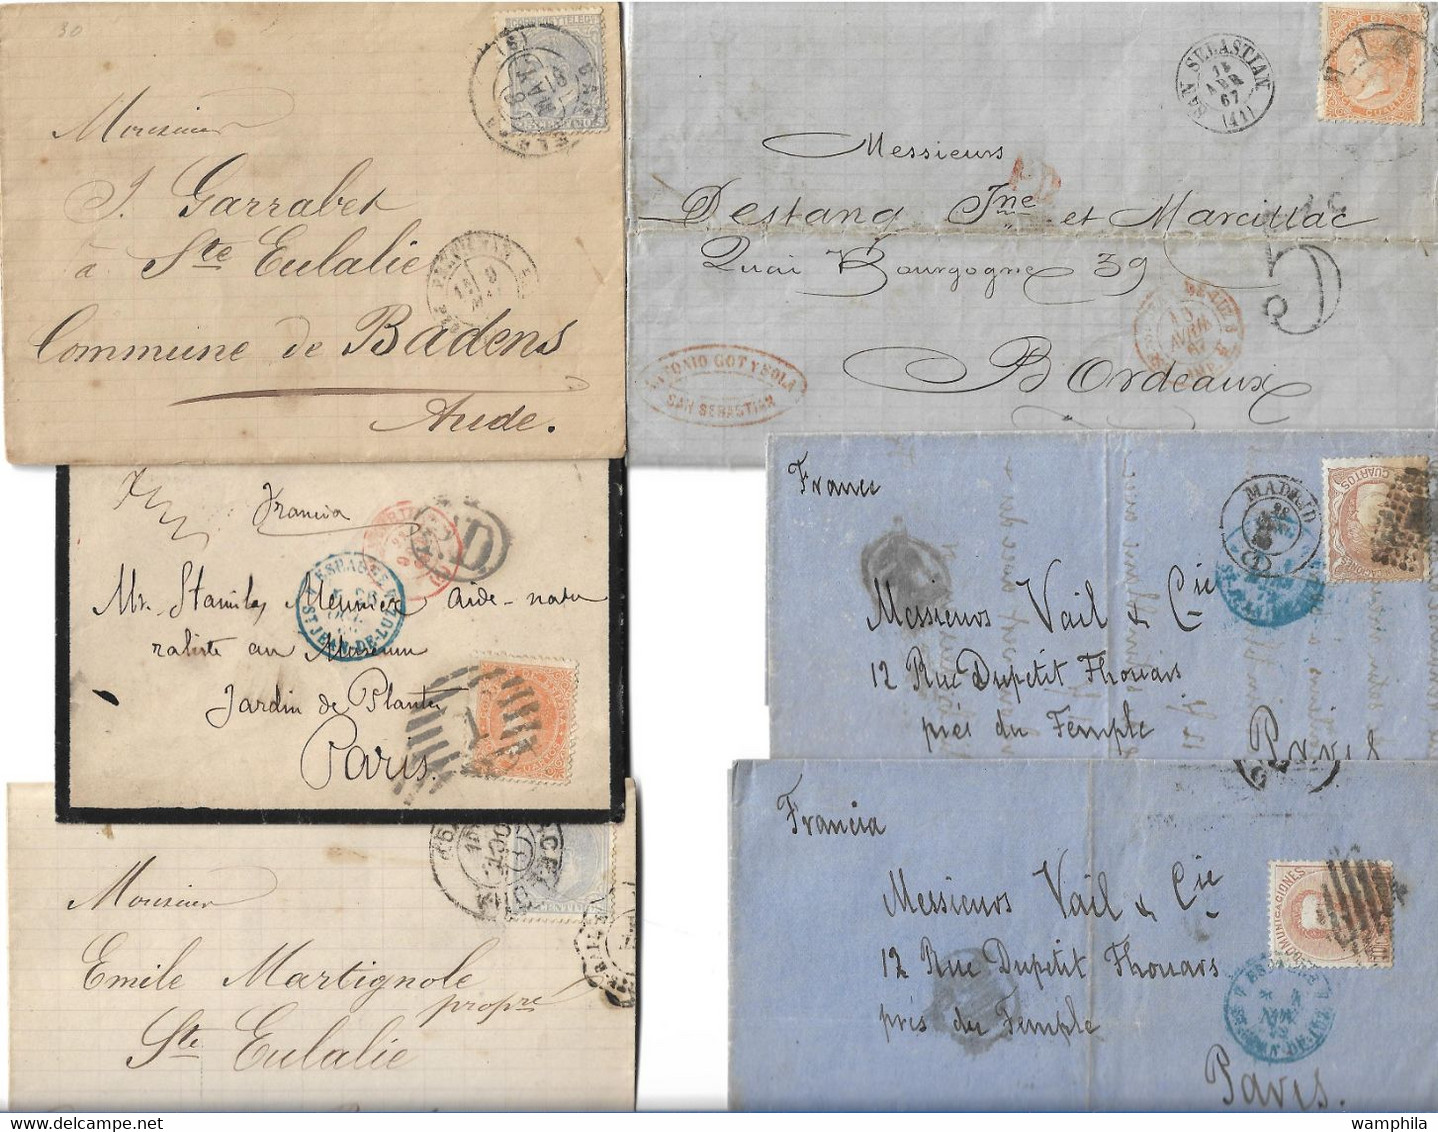 30
CORREOS Y TELEG
Monsieur
J. Garrabet
à Ste Eulalie
Commune de Badens
Aude.
SAN SEBASTIAN
15
ABR
67
(41)
Messieurs
P.D
Destang Jne et Marcillac
Quai Bourgogne 39
Bordeaux
ANTONIO GOT Y SOLA
SAN SEBASTIAN
Francia
PD
ESPAGNE
ST JEAN-DE-LUZ
Mr. Stanislas Meunier Aide-natu
raliste au Museum
Jardin de Plantes
Paris.
1
France
MADRID
(1)
CUARTOS
Messieurs Vail & Cie
12 Rue Dupetit Thouars
près du Temple
Paris
Francia
COMUNICACIONES
Messieurs Vail & Cie
12 Rue Dupetit Thouars
près du Temple
Paris.
Monsieur
Emile Martignole
propre
Ste Eulalie
wamphila